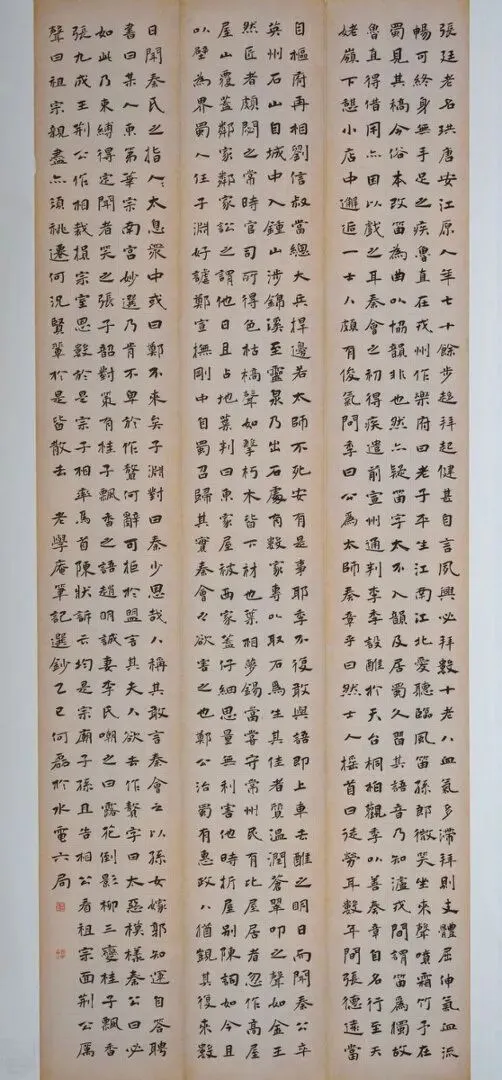 張廷老名珙唐安江原人年七十餘步趨拜起健甚自言夙興必拜數十老人血氣多滯拜則支體屈伸氣血流
暢可終身無手足之疾魯直在戎州作樂府曰老子平生江南江北愛聽臨風笛孫郎微笑坐來聲噴霜竹予在
蜀見其稿今俗本改笛為曲以協韻非也然亦疑笛字太不入韻及居蜀久習其語音乃知瀘戎間謂笛為獨故
魯直得借用亦因以戲之耳秦會之初得疾遣前宣州通判李季設醮於天台桐柏觀季以善奏章自名行至天
姥嶺下憩小店中邂逅一士人頗有俊氣問季曰公為太師奏章乎曰然士人搖首曰徒勞耳數年間張德遠當
自樞府再相劉信叔當總大兵捍邊若太師不死安有是事耶季不復敢與語即上車去醮之明日而聞秦公卒
英州石山自城中入鍾山涉錦溪至靈泉乃出石處有數家專以取石為生其佳者質溫潤蒼翠叩之聲如金玉
然匠者頗閟之常時官司所得色枯槁聲如擊朽木皆下材也葉相夢錫當嘗守常州民有比屋居者忽作高屋
屋山覆蓋鄰家鄰家訟之謂他日且占地葉判曰東家屋被西家蓋仔細思量無利害他時折屋別陳詞如今且
以壁為界蜀人任子淵好謔鄭宣撫剛中自蜀召歸其實秦會之欲害之也鄭公治蜀有惠政人猶覬其復來數
日聞秦氏之指人人太息眾中或曰鄭不來矣子淵對曰秦少恩哉人稱其敢言秦會之以孫女嫁郭知運自答聘
書曰某人東第華宗南宮妙選乃肯不卑於作贅何辭可拒於盟言其夫人欲去作贅字曰太惡模樣秦公曰必
如此乃束縛得定聞者笑之張子韶對策有桂子飄香之語趙明誠妻李氏嘲之曰露花倒影柳三變桂子飄香
張九成王荊公作相裁損宗室恩數於是宗子相率馬首陳狀訴云均是宗廟子孫且告相公看祖宗面荊公厲
聲曰祖宗親盡亦須祧遷何況賢輩於是皆散去 老學庵筆記選鈔乙巳何磊於水電六局